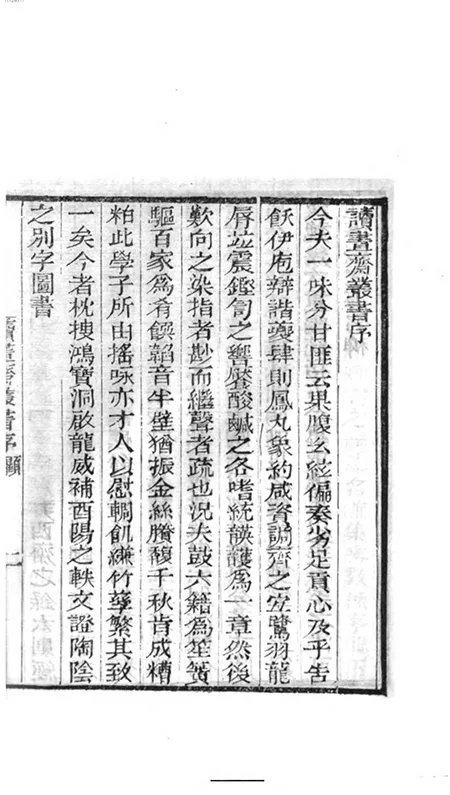 讀畫齋叢書序
今夫一味分甘匪云果腹么絃偏奏劣足貢心及乎告
飫伊庖辯諧夔肆則鳳丸象約咸資調齊之宜鷺羽龍
脣竝震鏗訇之響饜酸鹹之各嗜統韺頀爲一章然後
歎向之染指者尠而繼聲者疏也況夫鼓六籍爲笙簧
驅百家爲肴饌韜音半壁猶振金絲賸馥千秋肯成糟
粕此學子所由搖咏亦才人以慰輖飢縑竹孳繁其致
一矣今者枕摉鴻寶洞啟龍威補酉陽之軼文證陶陰
之別字圖書
讀畫齋叢書序 顧 一